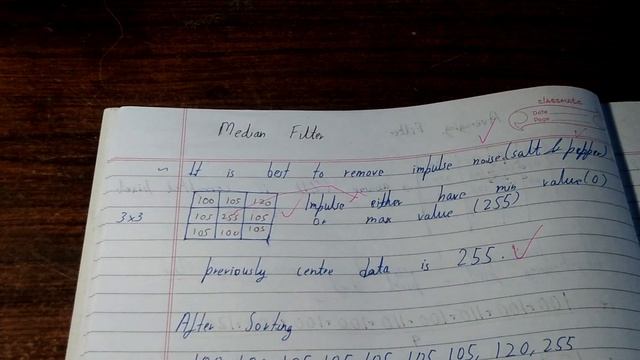 classmate
Date
Page
Median Filter
~ It is best to remove impulse noise (salt & pepper)
100 105 120
105 255 105
105 100 105
3x3
Impulse either have min value (0)
or max value (255)
previously centre data is 255.
After Sorting
100, 100, 105, 105, 105, 105, 105, 120, 255